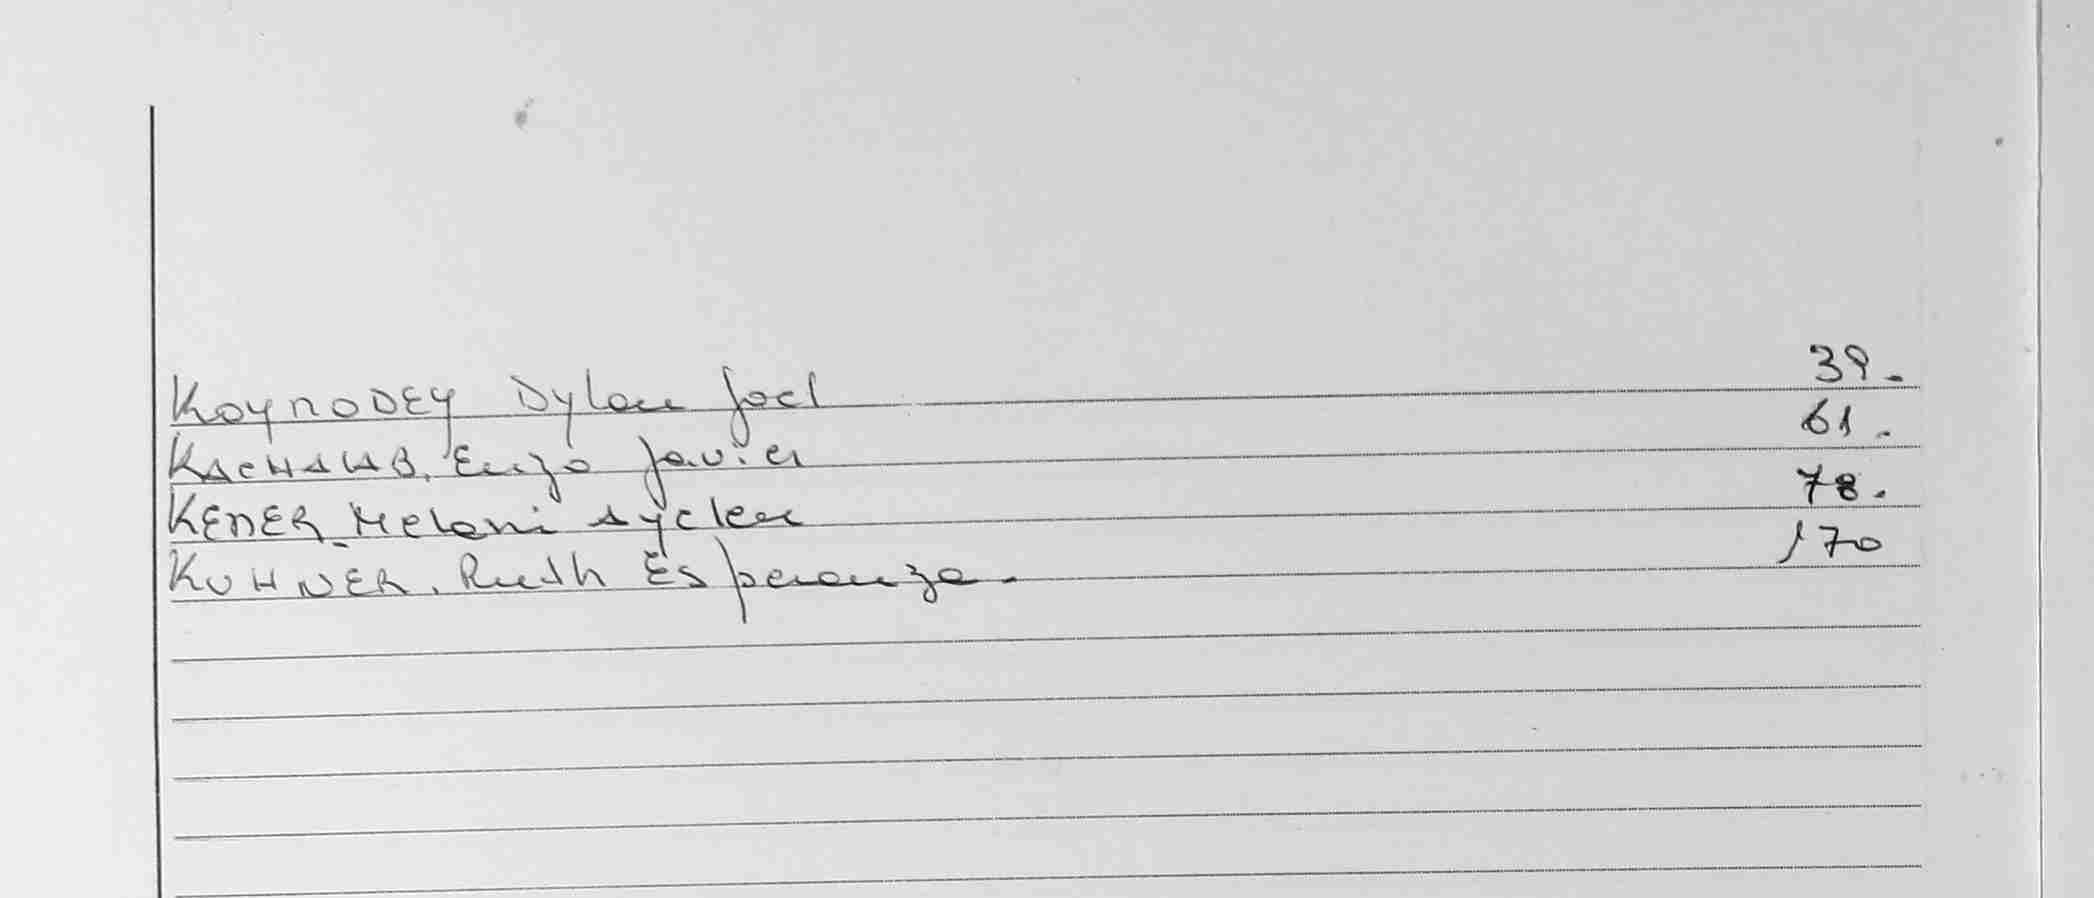 KOYNODEY Dylan Joel 39.
KACHALAB, Enzo Javier 61.
KENER Melani Aylen 78.
KUHNER, Ruth Esperanza. 170